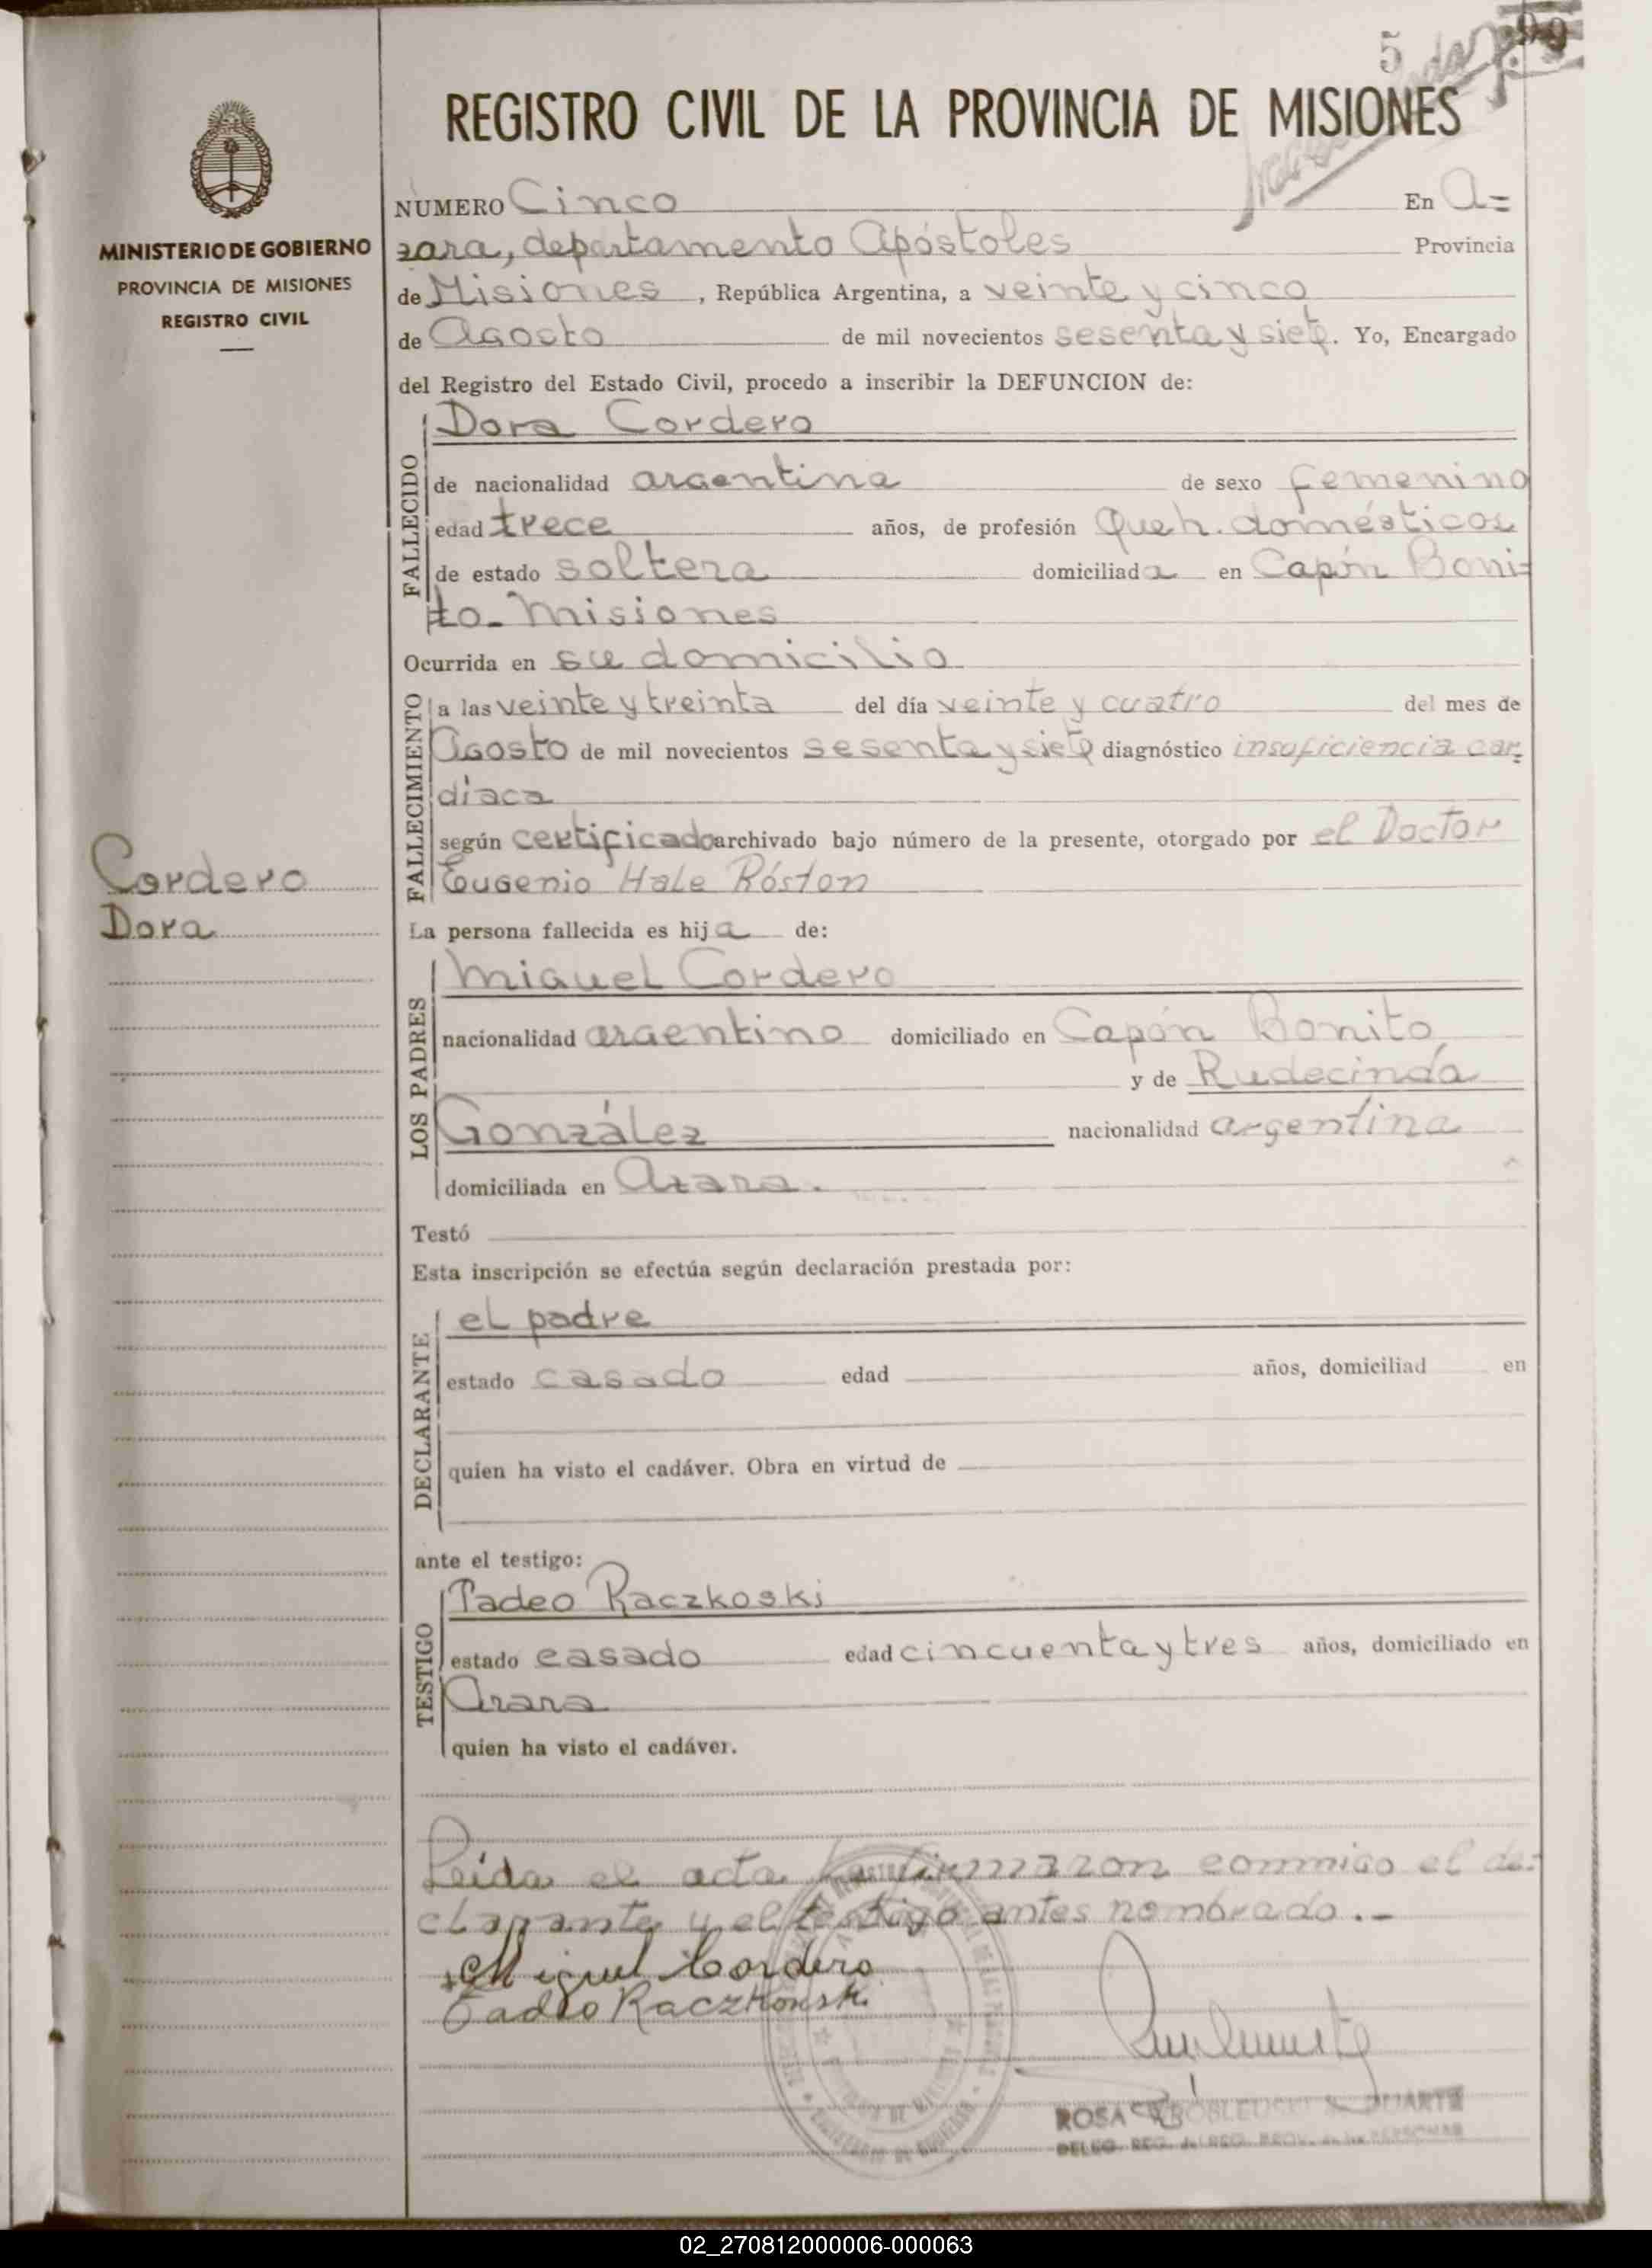 5
99
REGISTRO CIVIL DE LA PROVINCIA DE MISIONES
MINISTERIO DE GOBIERNO
PROVINCIA DE MISIONES
REGISTRO CIVIL
NUMERO Cinco En A=
zara, departamento Apóstoles Provincia
de Misiones, República Argentina, a veinte y cinco
de Agosto de mil novecientos sesenta y siete. Yo, Encargado
del Registro del Estado Civil, procedo a inscribir la DEFUNCION de:
FALLECIDO
Dora Cordero
de nacionalidad argentina de sexo femenino
edad trece años, de profesión Queh. domésticos
de estado soltera domiciliada en Capón Boni=
to - Misiones
Ocurrida en su domicilio
FALLECIMIENTO
a las veinte y treinta del día veinte y cuatro del mes de
Agosto de mil novecientos sesenta y siete diagnóstico insuficiencia car=
díaca
según certificado archivado bajo número de la presente, otorgado por el Doctor
Eugenio Hale Róston
Cordero
Dora
La persona fallecida es hija de:
LOS PADRES
Miguel Cordero
nacionalidad argentino domiciliado en Capón Bonito
y de Rudecinda
González nacionalidad argentina
domiciliada en Azara.
Testó
Esta inscripción se efectúa según declaración prestada por:
DECLARANTE
el padre
estado casado edad años, domiciliad en
quien ha visto el cadáver. Obra en virtud de
ante el testigo:
TESTIGO
Tadeo Raczkoski
estado casado edad cincuenta y tres años, domiciliado en
Azara
quien ha visto el cadáver.
Leída el acta la firmaron conmigo el de=
clarante y el testigo antes nombrado.-
Miguel Cordero
Tadeo Raczkowski
ROSA DUARTE
02_270812000006-000063